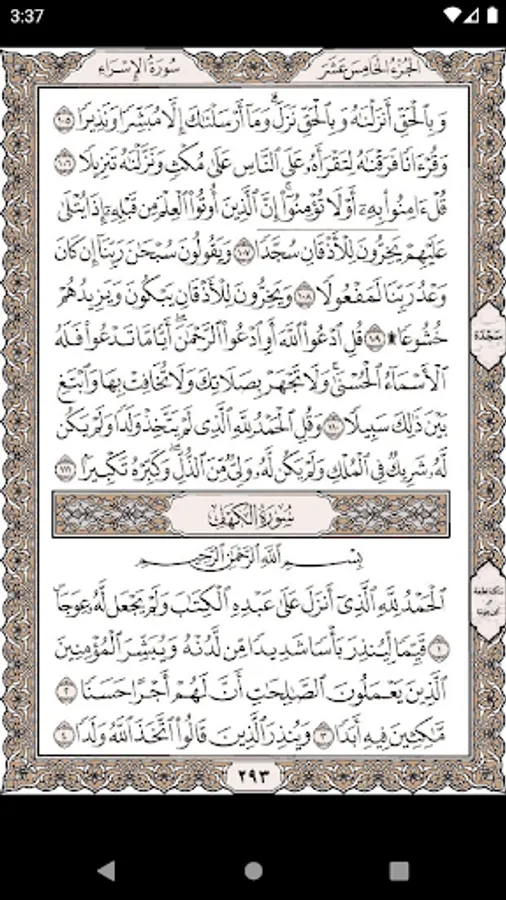 3:37
الجزء الخامس عشر
سورة الإسراء
وَبِٱلْحَقِّ أَنزَلْنَٰهُ وَبِٱلْحَقِّ نَزَلَ ۗ وَمَآ أَرْسَلْنَٰكَ إِلَّا مُبَشِّرًا وَنَذِيرًا ١٠٥
وَقُرْءَانًا فَرَقْنَٰهُ لِتَقْرَأَهُۥ عَلَى ٱلنَّاسِ عَلَىٰ مُكْثٍ وَنَزَّلْنَٰهُ تَنزِيلًا ١٠٦
قُلْ ءَامِنُوا۟ بِهِۦٓ أَوْ لَا تُؤْمِنُوٓا۟ ۚ إِنَّ ٱلَّذِينَ أُوتُوا۟ ٱلْعِلْمَ مِن قَبْلِهِۦٓ إِذَا يُتْلَىٰ
عَلَيْهِمْ يَخِرُّونَ لِلْأَذْقَانِ سُجَّدًا ١٠٧ وَيَقُولُونَ سُبْحَٰنَ رَبِّنَآ إِن كَانَ
وَعْدُ رَبِّنَا لَمَفْعُولًا ١٠٨ وَيَخِرُّونَ لِلْأَذْقَانِ يَبْكُونَ وَيَزِيدُهُمْ
خُشُوعًا ۩ ١٠٩ قُلِ ٱدْعُوا۟ ٱللَّهَ أَوِ ٱدْعُوا۟ ٱلرَّحْمَٰنَ ۖ أَيًّا مَّا تَدْعُوا۟ فَلَهُ
ٱلْأَسْمَآءُ ٱلْحُسْنَىٰ ۚ وَلَا تَجْهَرْ بِصَلَاتِكَ وَلَا تُخَافِتْ بِهَا وَٱبْتَغِ
بَيْنَ ذَٰلِكَ سَبِيلًا ١١٠ وَقُلِ ٱلْحَمْدُ لِلَّهِ ٱلَّذِى لَمْ يَتَّخِذْ وَلَدًا وَلَمْ يَكُن
لَّهُۥ شَرِيكٌ فِى ٱلْمُلْكِ وَلَمْ يَكُن لَّهُۥ وَلِىٌّ مِّنَ ٱلذُّلِّ ۖ وَكَبِّرْهُ تَكْبِيرًۢا ١١١
سجدة
سورة الكهف
بِسْمِ ٱللَّهِ ٱلرَّحْمَٰنِ ٱلرَّحِيمِ
ٱلْحَمْدُ لِلَّهِ ٱلَّذِىٓ أَنزَلَ عَلَىٰ عَبْدِهِ ٱلْكِتَٰبَ وَلَمْ يَجْعَل لَّهُۥ عِوَجَا ۜ
١ قَيِّمًا لِّيُنذِرَ بَأْسًا شَدِيدًا مِّن لَّدُنْهُ وَيُبَشِّرَ ٱلْمُؤْمِنِينَ
ٱلَّذِينَ يَعْمَلُونَ ٱلصَّٰلِحَٰتِ أَنَّ لَهُمْ أَجْرًا حَسَنًا ٢
مَّٰكِثِينَ فِيهِ أَبَدًا ٣ وَيُنذِرَ ٱلَّذِينَ قَالُوا۟ ٱتَّخَذَ ٱللَّهُ وَلَدًا ٤
٢٩٣